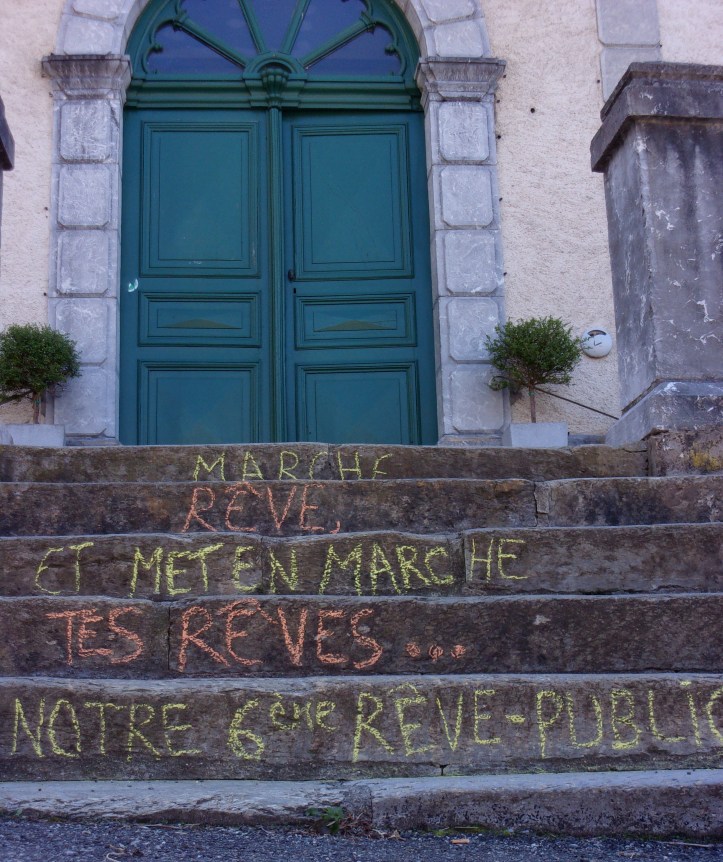 MARCHE
RÊVE,
ET MET EN MARCHE
TES RÊVES...
NOTRE 6ème RÊVE-PUBLIC